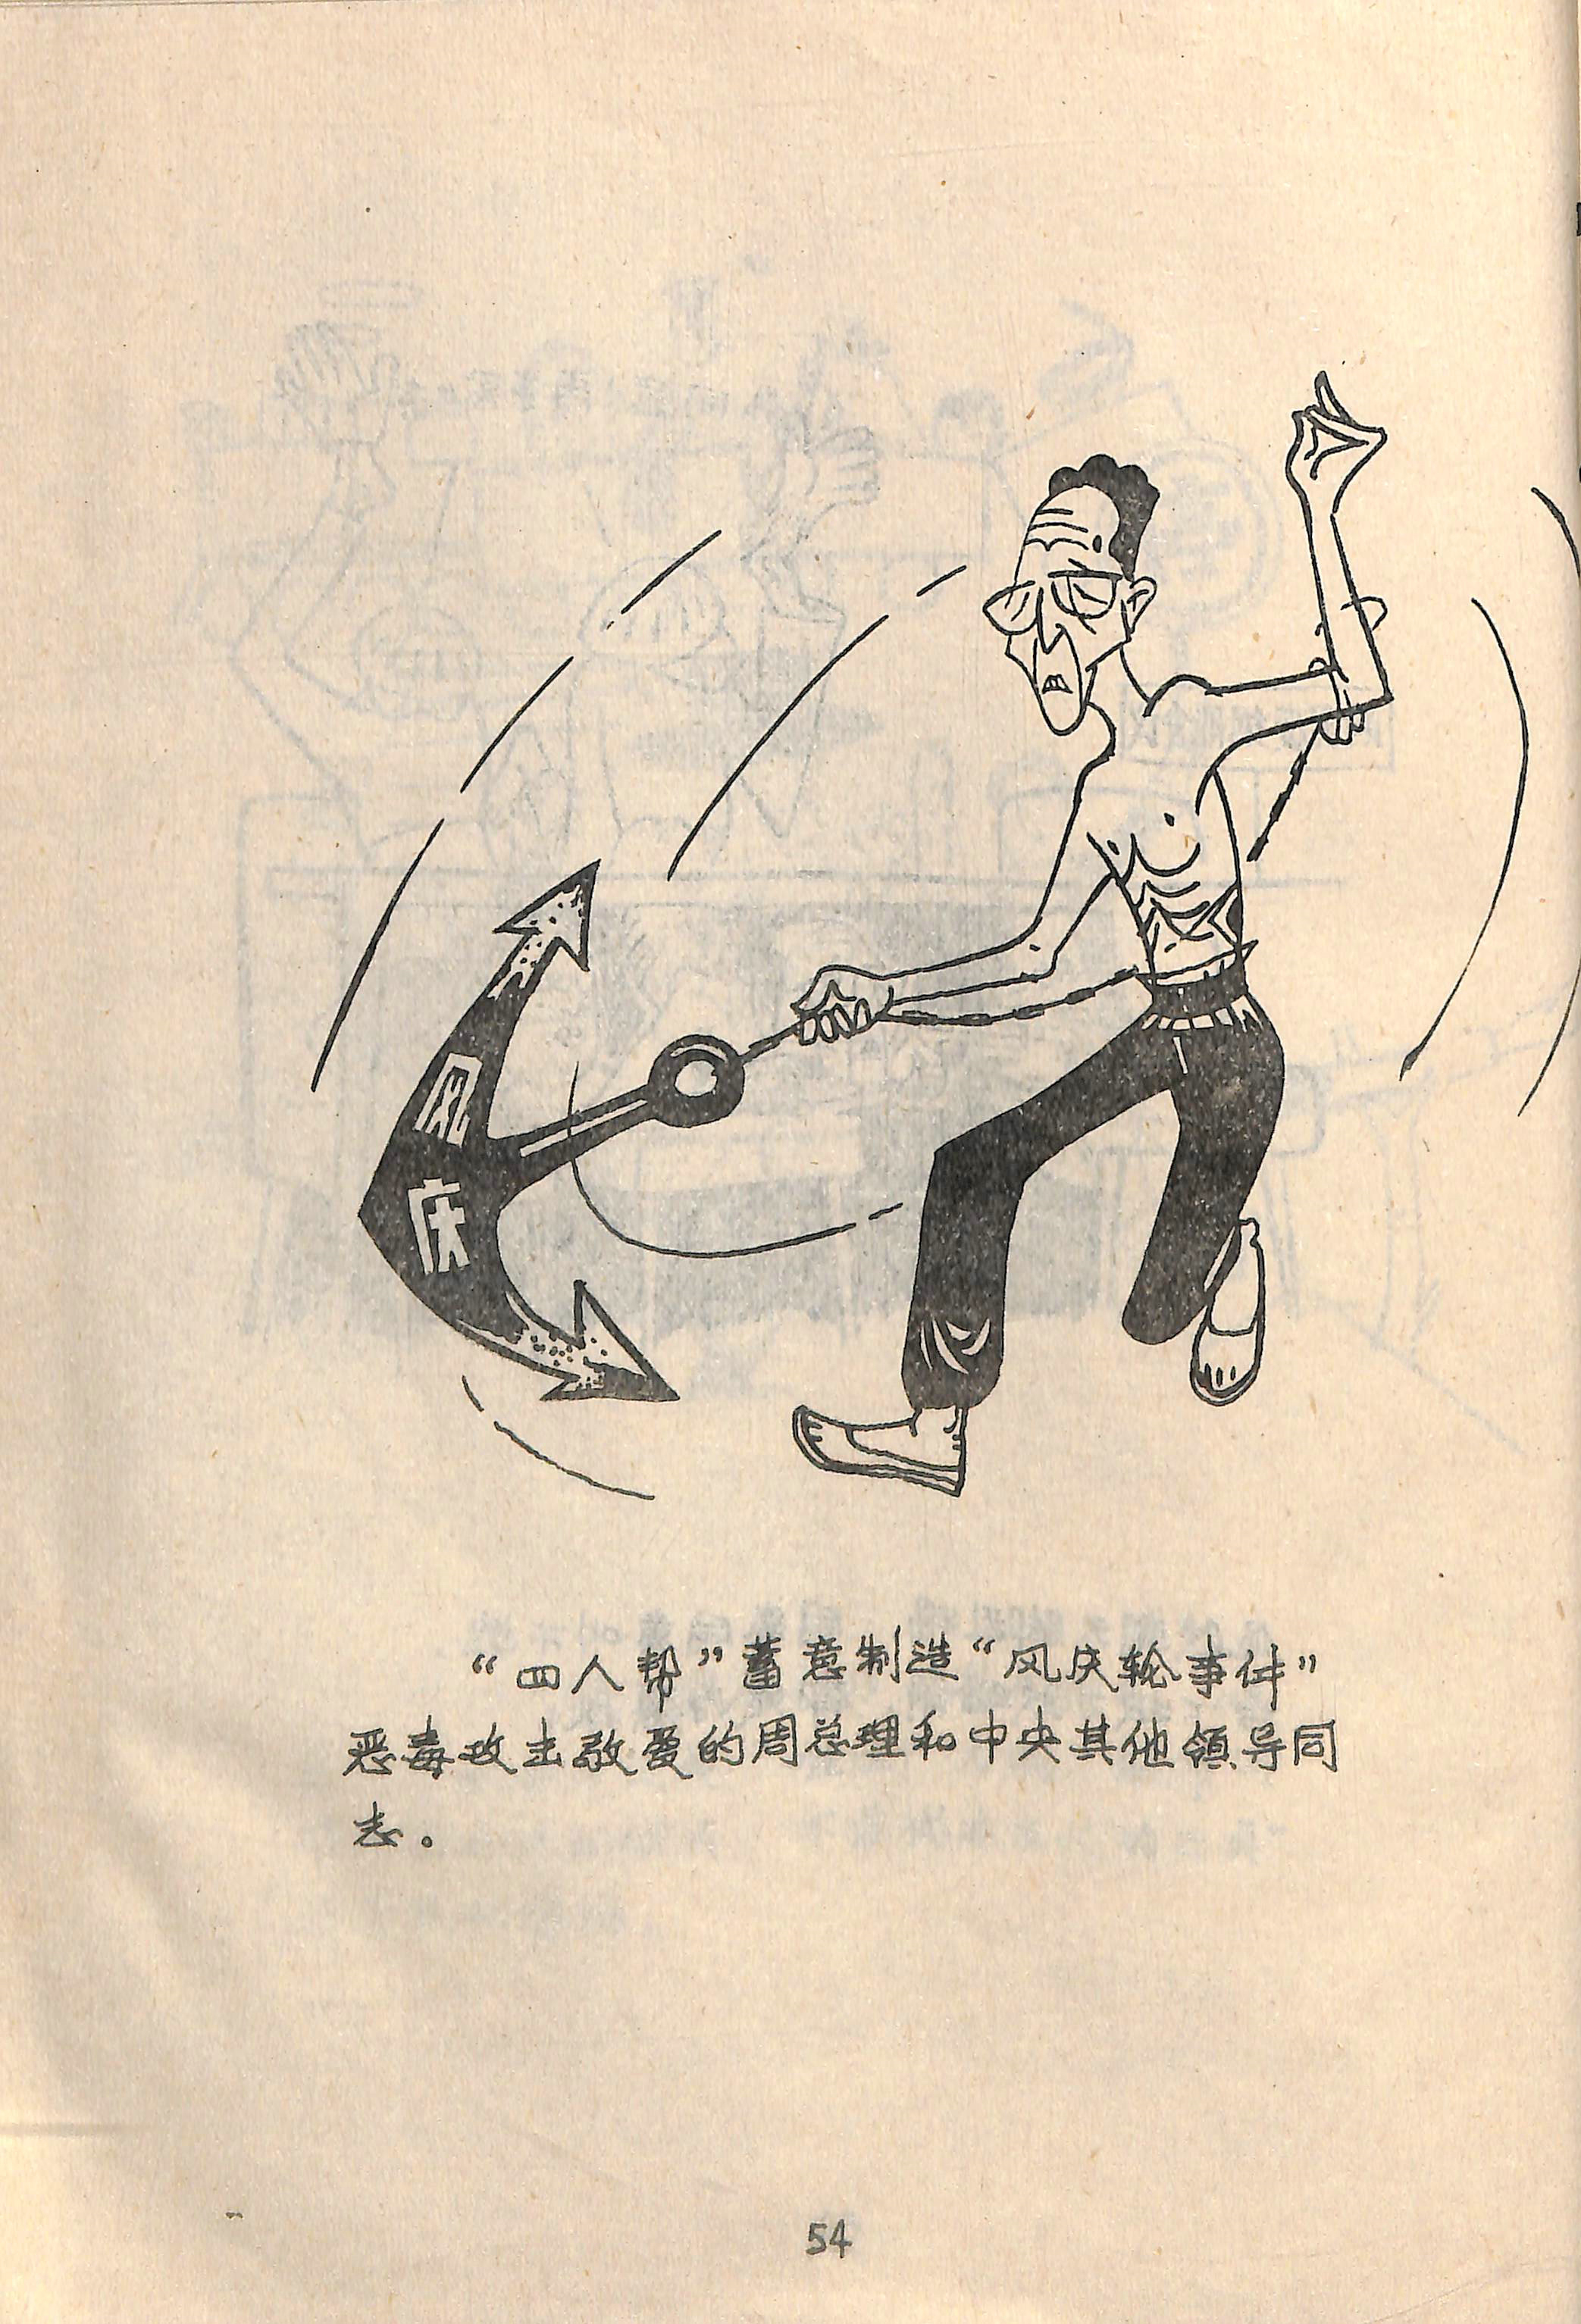 风
庆
“四人帮”蓄意制造“风庆轮事件”
恶毒攻击敬爱的周总理和中央其他领导同
志。
54